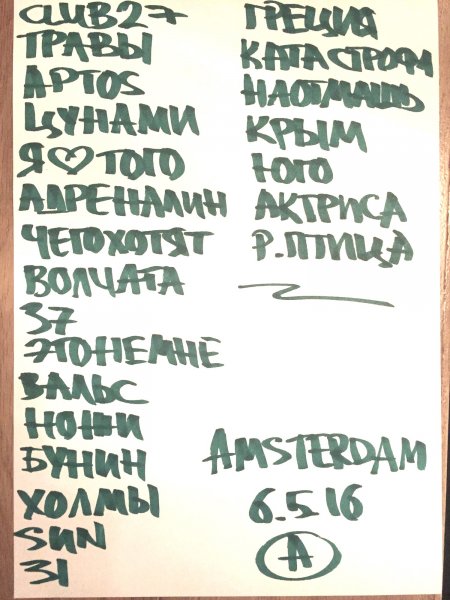 CLUB27
ТРАВЫ
АРТОS
ЦУНАМИ
Я♡ТОГО
АДРЕНАЛИН
ЧЕГОХОТЯТ
ВОЛЧАТА
37
ЭТОНЕМНЕ
ВАЛЬС
НОЖИ
БУНИН
ХОЛМЫ
SUN
31
ГРЕЦИЯ
КАТАСТРОФА
НАОТМАШЬ
КРЫМ
ЮГО
АКТРИСА
Р.ПТИЦА
AMSTERDAM
6.5.16
A